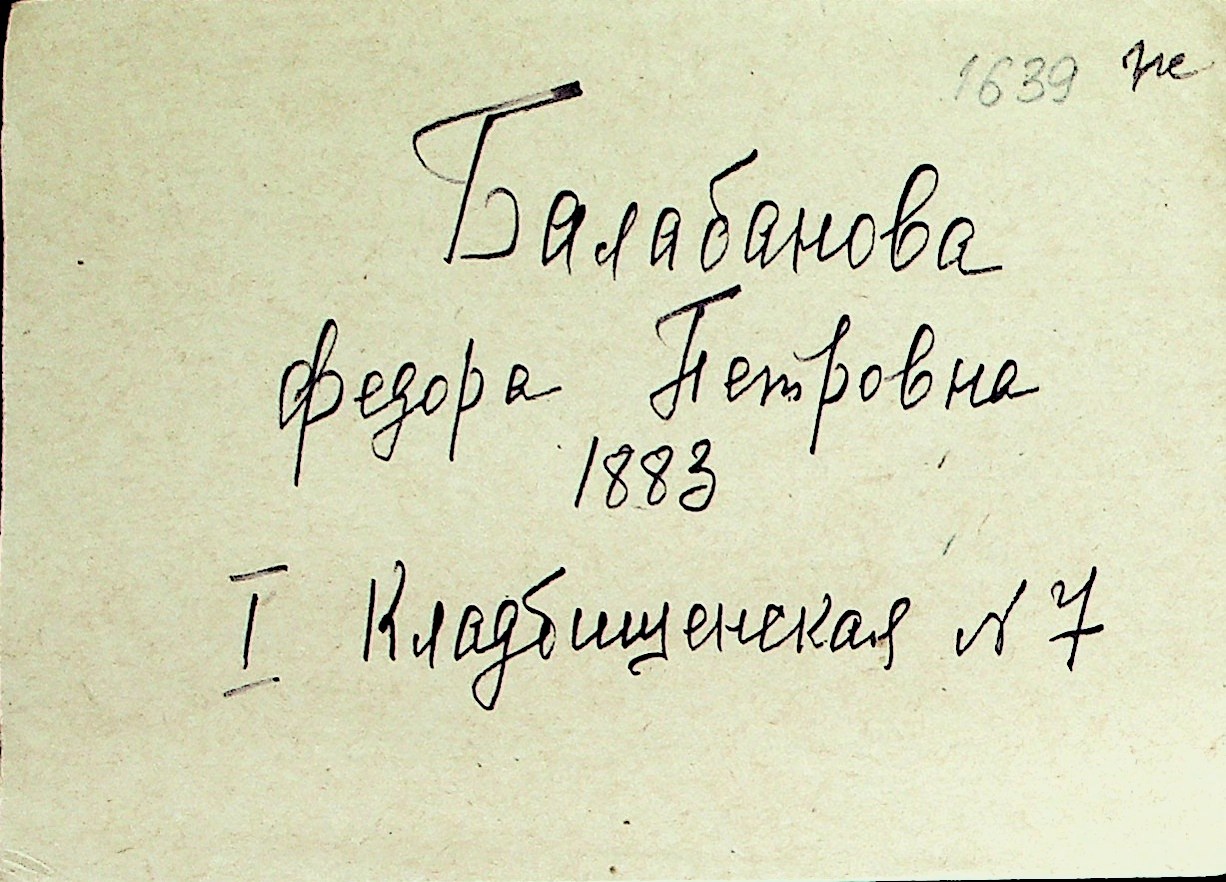 1639
Балабанова
Федора Петровна
1883
I Кладбищенская N 7